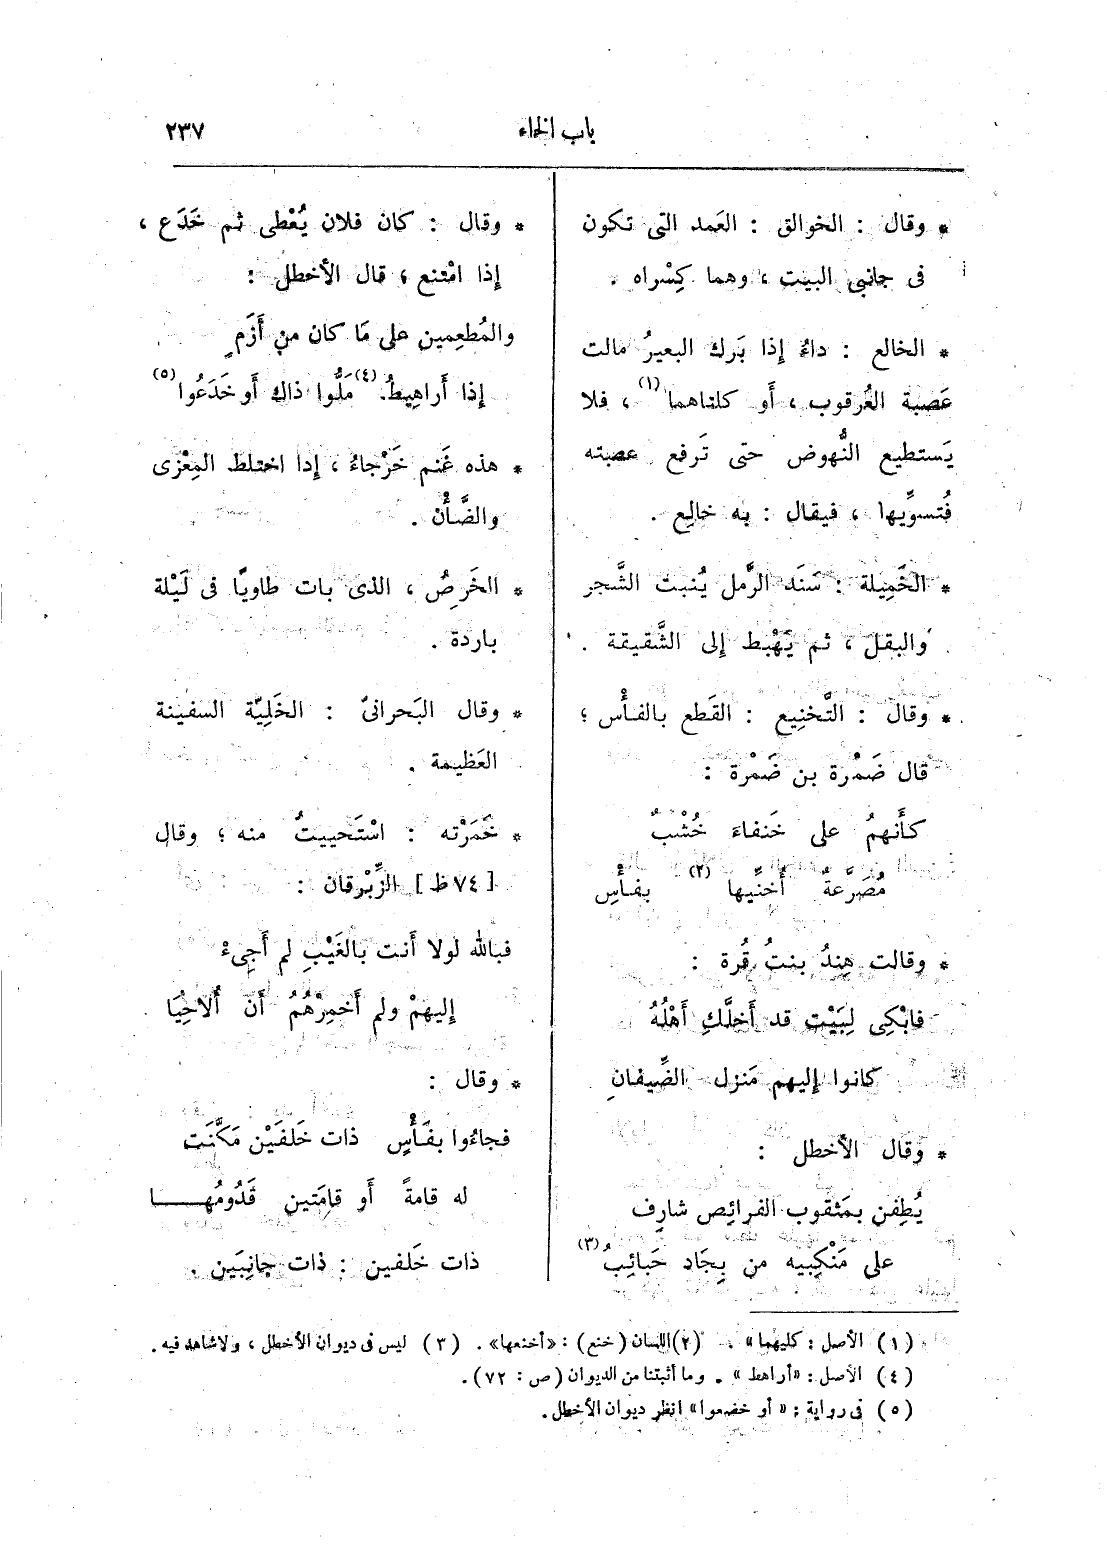 باب الخاء
٢٣٧
* وقال : الخوالق : العَمد التى تكون
فى جانبى البيت ، وهما كِسْراه .
* الخالع : داءُ إذا بَرك البعيرُ مالت
عَصبة العُرقوب ، أَو كلتاهما (١) ، فلا
يَستطيع النُّهوض حتى تَرفع عصبته
فُتسوِّيها ، فيقال : به خالِع .
* الخَمِيلة : سَنَد الرَّمل يُنبت الشَّجر
والبقل ، ثم يَهْبط إلى الشَّقيقة .
* وقال : التَّخنِيع : القَطع بالفأْس ؛
قال ضَمْرة بن ضَمْرة :
كأَنهمُ على خَنفاءَ خُشْبٌ
مُصَرَّعةٌ أُخنِّيها (٢) بفأْسِ
* وقالت هِندُ بنتُ قُرة :
فابْكِى لِبَيْت قد أَخلَّكِ أَهْلُهُ
كانوا إليهم مَنزل الضِّيفانِ
* وقال الأخطل :
يُطِفن بمَثقوب الفرائِص شارِف
على مَنْكِبيه من بِجَادِ خَبائِبُ (٣)
* وقال : كان فلان يُعْطى ثم خَدَع ،
إذا امْتنع ، قال الأخطل :
والمُطعِمين على مَا كان من أَزَمٍ
إذا أراهِيطُ (٤) مَلُّوا ذاك أَو خَدَعُوا (٥)
* هذه غَنم خَرْجاءُ ، إذا اختلط المِعْزى
والضَّأْن .
* الخَرِصُ ، الذى بات طاويًا فى لَيْلة
باردة .
* وقال البَحرانىّ : الخَلِيّة السفينة
العَظيمة .
* خَمَرْته : اسْتَحييتُ منه ؛ وقال
[ ٧٤ ظ ] الزِّبْرقان :
فبالله لولا أَنت بالغَيْبِ لم أَجِىءْ
إليهمْ ولم أَخمِرْهُمُ أَنْ أُلاحِيَا
* وقال :
فجاءُوا بفَأْسٍ ذات خَلفَيْن مَكَّنَت
له قامةً أَو قامَتين قَدُومُهـــا
ذات خَلفين : ذات جانِبَين .
(١) الأصل : كليهما» . (٢) اللسان (خنع) : «أخنعها» . (٣) ليس فى ديوان الأخطل ، ولا شاهد فيه .
(٤) الأصل : «أراهط» . وما أثبتنا من الديوان (ص : ٧٢) .
(٥) فى رواية : «أو خضعوا» انظر ديوان الأخطل .